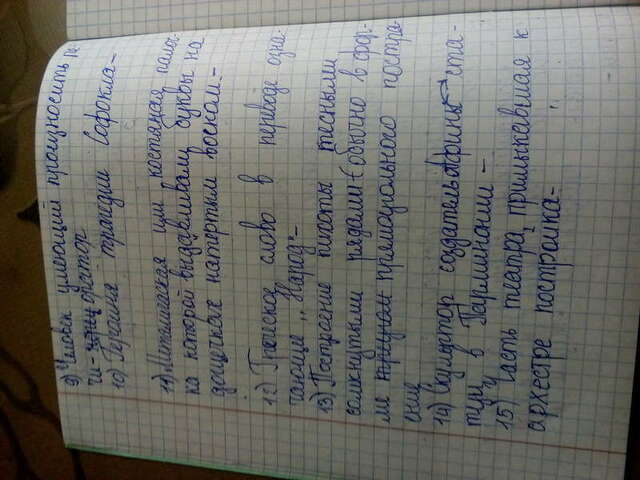 9) Человек умеющий произносить ре-
чи- оратор
10) Героиня трагедии Софокла-
11) Металическая или костяная палоч-
ка которой выдавливали буквы на
дощечке натёртым воском-
12) Греческое слово в переводе озна-
чающее "Народ"-
13) Построение пихоты тесными
сомкнутыми рядами (обычно в фор-
ме прямоугольного постра-
ение
14) Скульптор создатель Афины ста-
туи в Парфиноми-
15) Часть театра, примыкавшая к
архестре постройка-